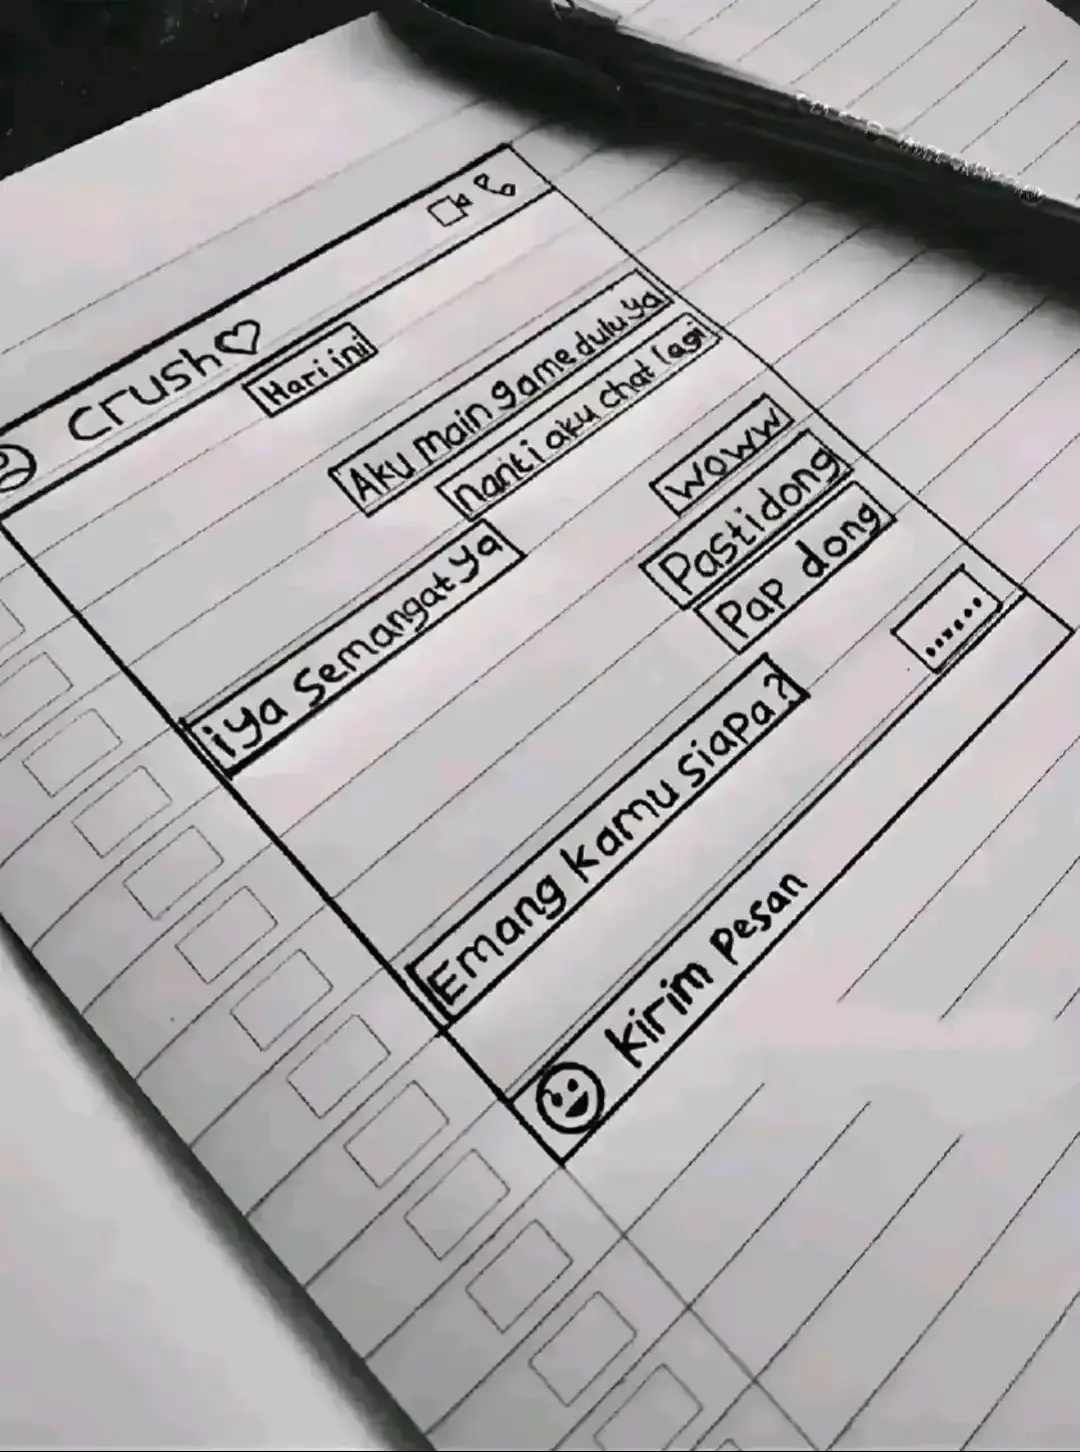 Crush♡
Hari ini
Aku main game dulu ya
nanti aku chat lagi
iya Semangat ya
Woww
Pasti dong
Pap dong
Emang kamu siapa?
......
Kirim Pesan